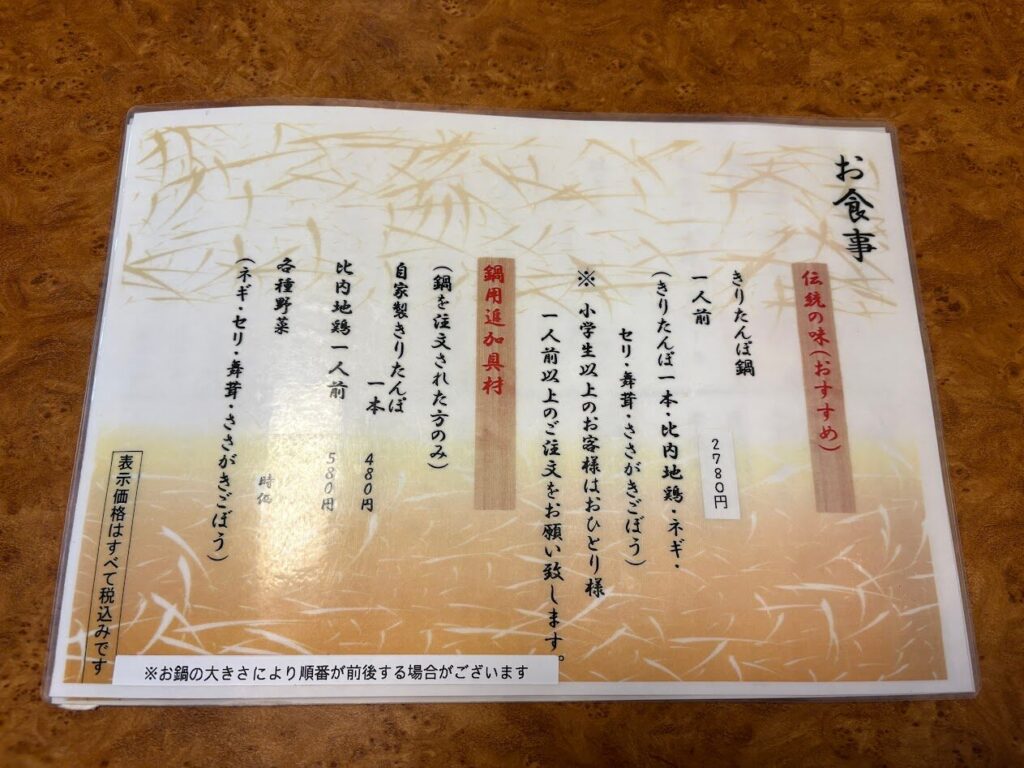 お食事
伝統の味（おすすめ）
きりたんぽ鍋
一人前
2780円
（きりたんぽ一本・比内地鶏・ネギ・
セリ・舞茸・ささがきごぼう）
※ 小学生以上のお客様はおひとり様
一人前以上のご注文をお願い致します。
鍋用追加具材
（鍋を注文された方のみ）
自家製きりたんぽ
一本
480円
比内地鶏一人前
580円
各種野菜
時価
（ネギ・セリ・舞茸・ささがきごぼう）
表示価格はすべて税込みです
※お鍋の大きさにより順番が前後する場合がございます